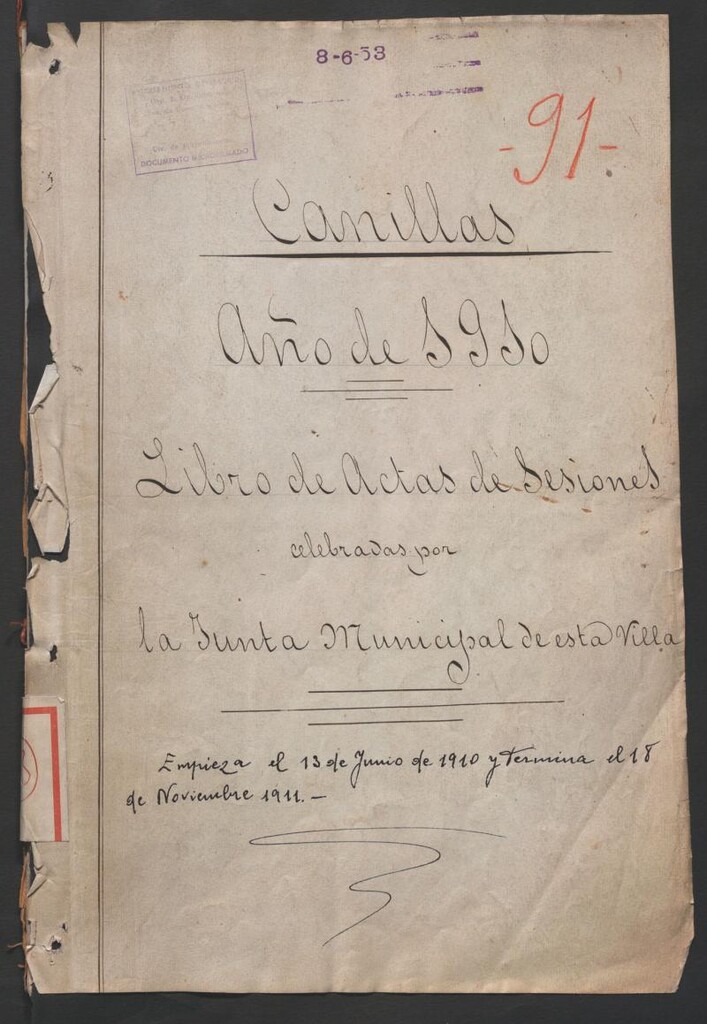 8-6-53
DOCUMENTO
-91-
Canillas
Año de 1910
Libro de Actas de Sesiones
celebradas por
la Junta Municipal de esta Villa
Empieza el 13 de Junio de 1910 y Termina el 18
de Noviembre 1911.-